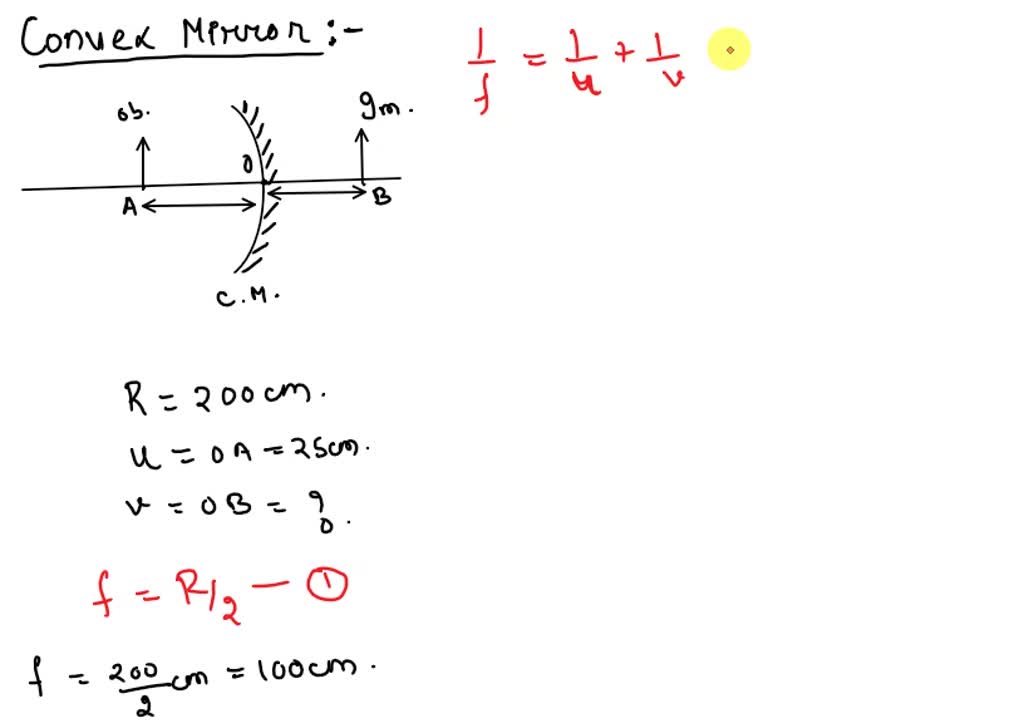 Convex Mirror :-
1/f = 1/u + 1/v
ob.
gm.
O
A
B
C.M.
R = 200 cm.
u = OA = 25cm.
v = OB = ?
f = R/2 — ①
f = 200/2 cm = 100 cm.